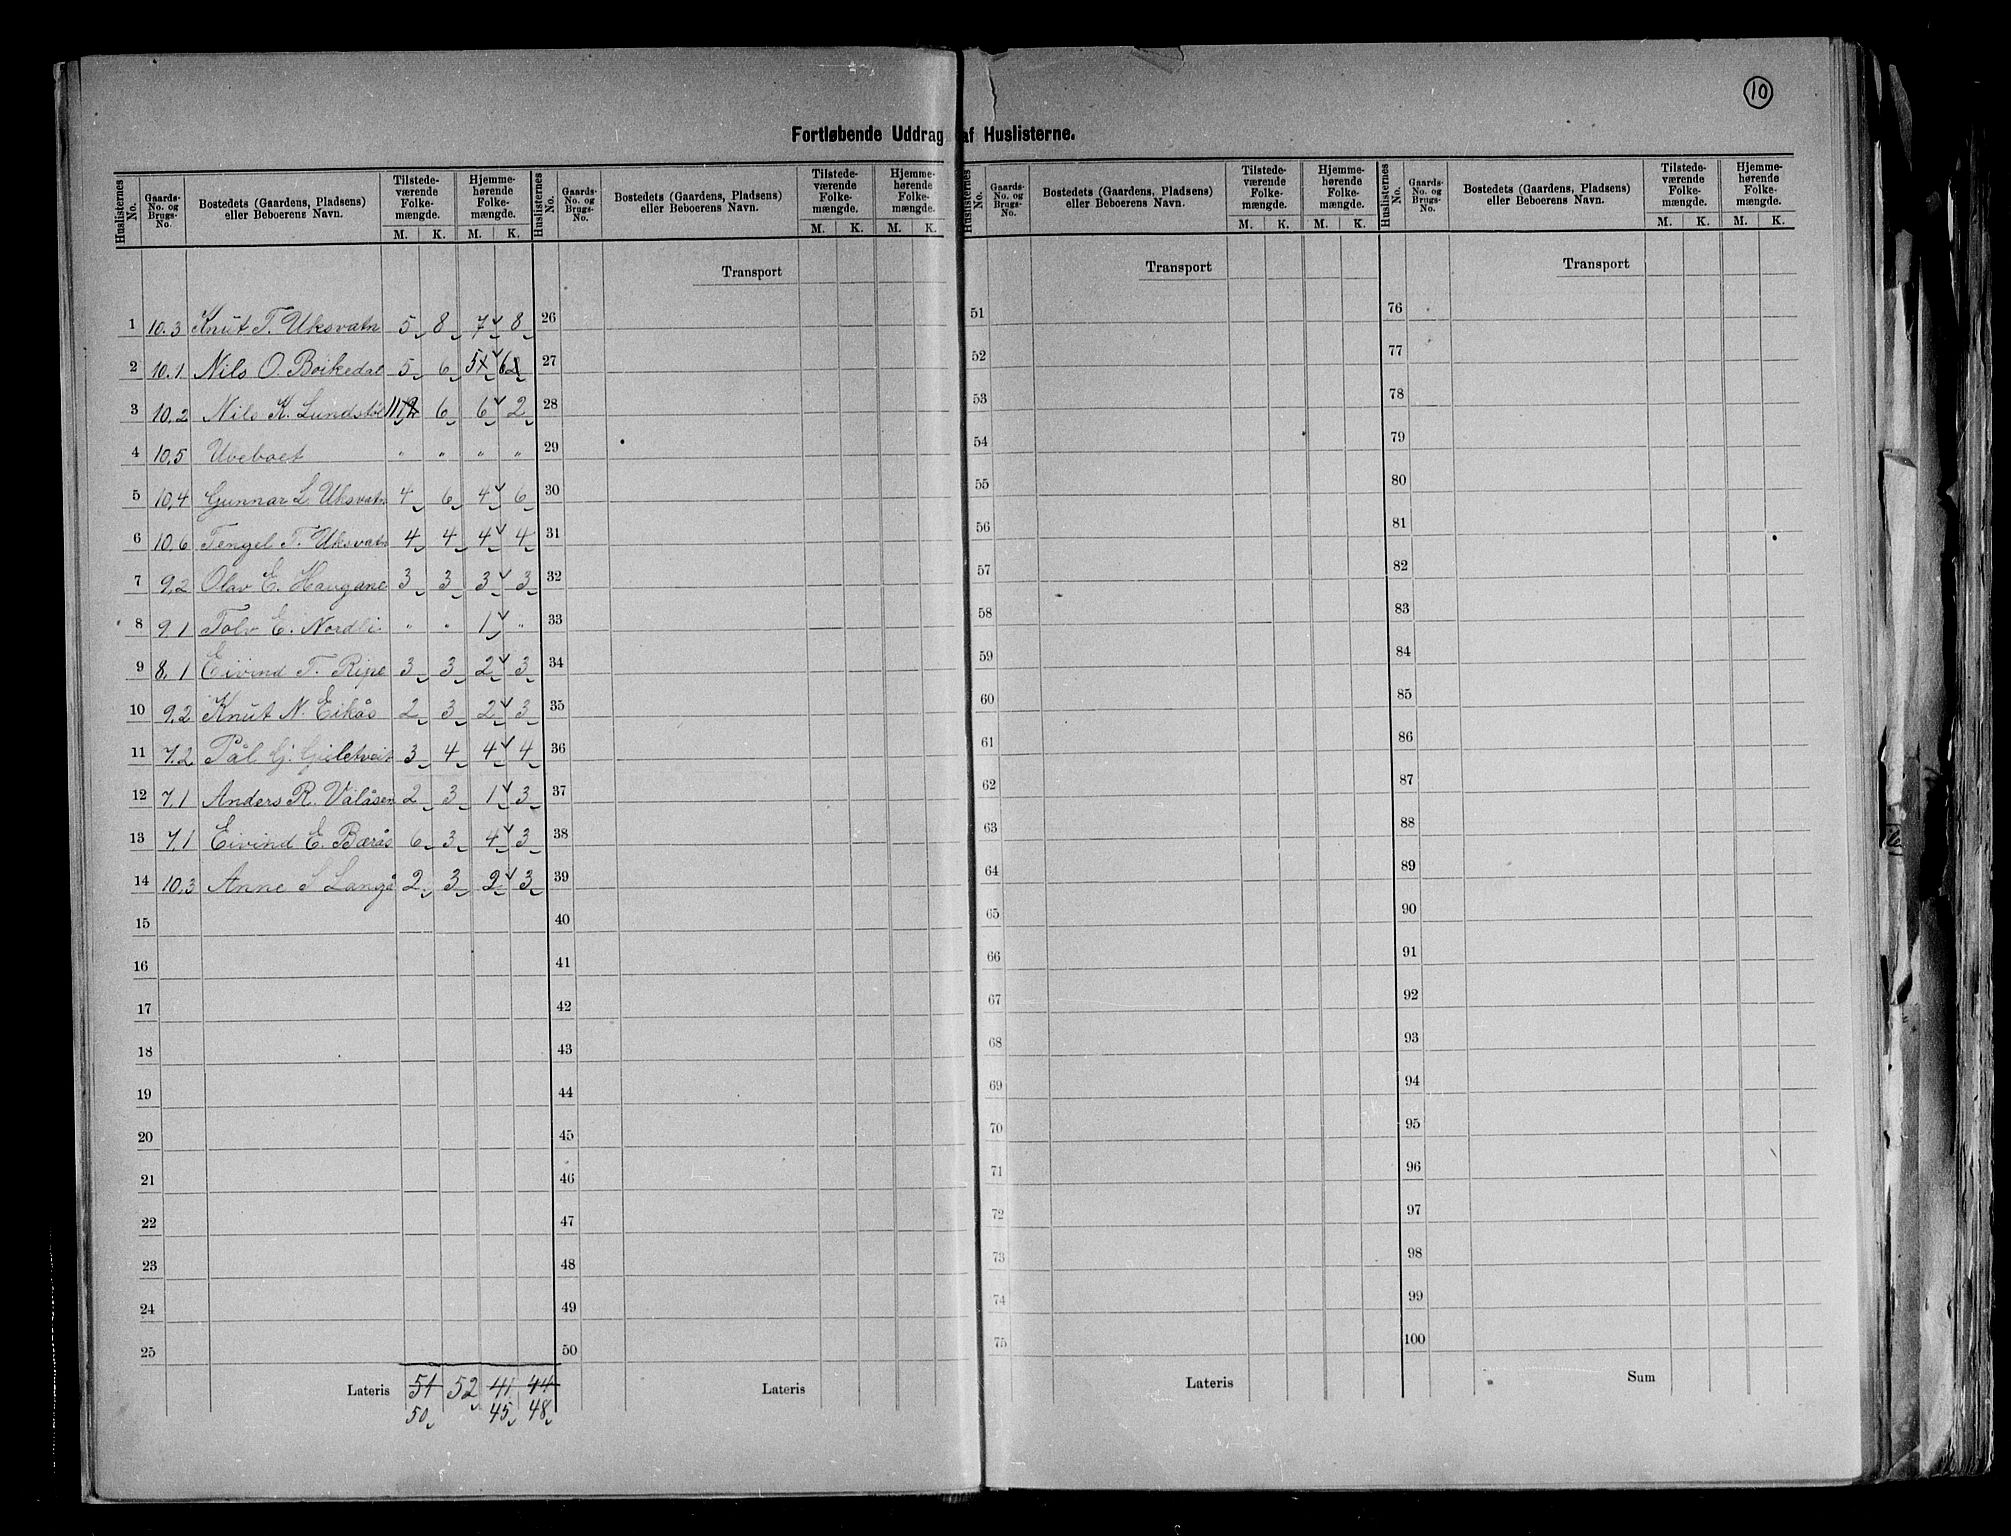 10
Fortløbende Uddrag af Huslisterne.
Huslisternes No. Gaards-No. og Brugs-No. Bostedets (Gaardens, Pladsens) eller Beboerens Navn. Tilstedeværende Folkemængde. M. K. Hjemmehørende Folkemængde. M. K.
Huslisternes No. Gaards-No. og Brugs-No. Bostedets (Gaardens, Pladsens) eller Beboerens Navn. Tilstedeværende Folkemængde. M. K. Hjemmehørende Folkemængde. M. K.
Huslisternes No. Gaards-No. og Brugs-No. Bostedets (Gaardens, Pladsens) eller Beboerens Navn. Tilstedeværende Folkemængde. M. K. Hjemmehørende Folkemængde. M. K.
Huslisternes No. Gaards-No. og Brugs-No. Bostedets (Gaardens, Pladsens) eller Beboerens Navn. Tilstedeværende Folkemængde. M. K. Hjemmehørende Folkemængde. M. K.
Transport Transport Transport
1 10.3 Knut T. Uksvatn 5 8 7 8 26 51 76
2 10.1 Nils O. Boikedal 5 6 5 6 27 52 77
3 10.2 Nils K. Lundstøl 11 6 6 2 28 53 78
4 10.5 Uveboet " " " " 29 54 79
5 10.4 Gunnar L. Uksvatn 4 6 4 6 30 55 80
6 10.6 Tengel T. Uksvatn 4 4 4 4 31 56 81
7 9.2 Olav E. Haugane 3 3 3 3 32 57 82
8 9.1 Tolv E. Nordli " " 1 " 33 58 83
9 8.1 Eivind T. Ripe 3 3 2 3 34 59 84
10 9.2 Knut N. Eikås 2 3 2 3 35 60 85
11 7.2 Pål G. 3 4 4 4 36 61 86
12 7.1 Anders R. Valåsen 2 3 1 3 37 62 87
13 7.1 Eivind E. Bærås 6 3 4 3 38 63 88
14 10.3 Anne S Langå 2 3 2 3 39 64 89
15 40 65 90
16 41 66 91
17 42 67 92
18 43 68 93
19 44 69 94
20 45 70 95
21 46 71 96
22 47 72 97
23 48 73 98
24 49 74 99
25 50 75 100
Lateris 51 52 41 44 Lateris Lateris Sum
50 45 48